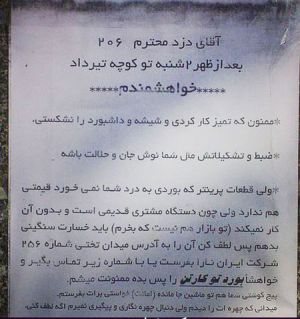 آقای دزد محترم ۲۰۶
بعد از ظهر ۲شنبه تو کوچه تیرداد
*****خواهشمندم*****
*ممنون که تمیز کار کردی و شیشه و داشبورد را نشکستی.
*ضبط و تشکیلاتش مال شما نوش جان و حلالت باشه
*ولی قطعات پرینتر که بوردی به درد شما نمی خورد قیمتی
هم ندارد ولی چون دستگاه مشتری قدیمی است و بدون آن
کار نمیکند (تو بازار هم نیست که بخرم) باید خسارت سنگینی
بدهم پس لطف کن آن را به آدرس میدان تختی شماره ۲۵۶
شرکت ایران نارا بفرست یا با شماره زیر تماس بگیر و
خواهشا بورد تو کارتن را پس بده ممنونت میشم.
پیچ گوشتی شما هم تو ماشین جا مانده (امانت) خواستی برات بفرستم.
میدانی که چهره ات را دیدم ولی دنبال چهره نگاری و پیگیری نمیرم اگه لطف کنی.